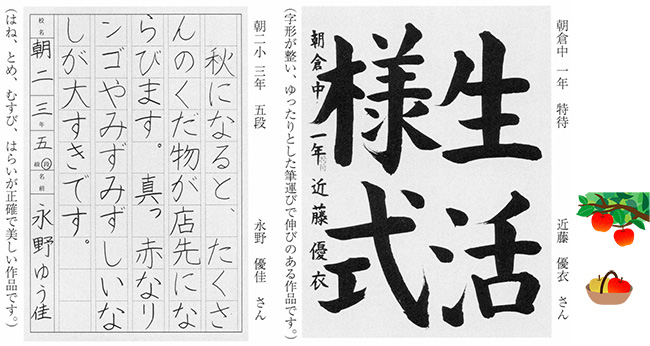 朝倉中 一年 特待 近藤 優衣 さん
生活
様式
朝倉中 一年 近藤優衣
(字形が整い、ゆったりとした筆運びで伸びのある作品です。)
朝二小 三年 五段 永野 優佳 さん
秋になると、たくさ
んのくだ物が店先にな
らびます。真っ赤なり
ンゴやみずみずしいな
しが大すきです。
校名 朝二 三年 五 級段 名前 永野ゆう佳
(はね、とめ、むすび、はらいが正確で美しい作品です。)